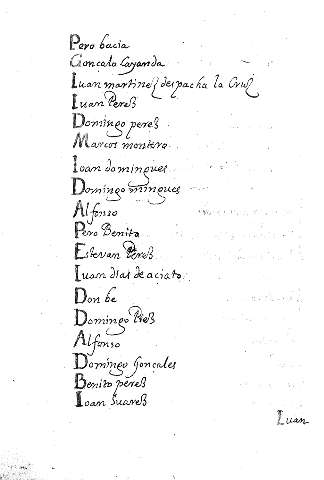 Pero bacia
Gonçalo Layanda
Iuan martinez despacha la Cruz
Iuan Perez
Domingo perez
Marcos montero
Ioan domingues
Domingo mingues
Alfonso
Pero Benito
Estevan Perez
Iuan dias de aciato
Don be
Domingo Prez
Alfonso
Domingo Goncales
Benito perez
Ioan Suarez
Iuan